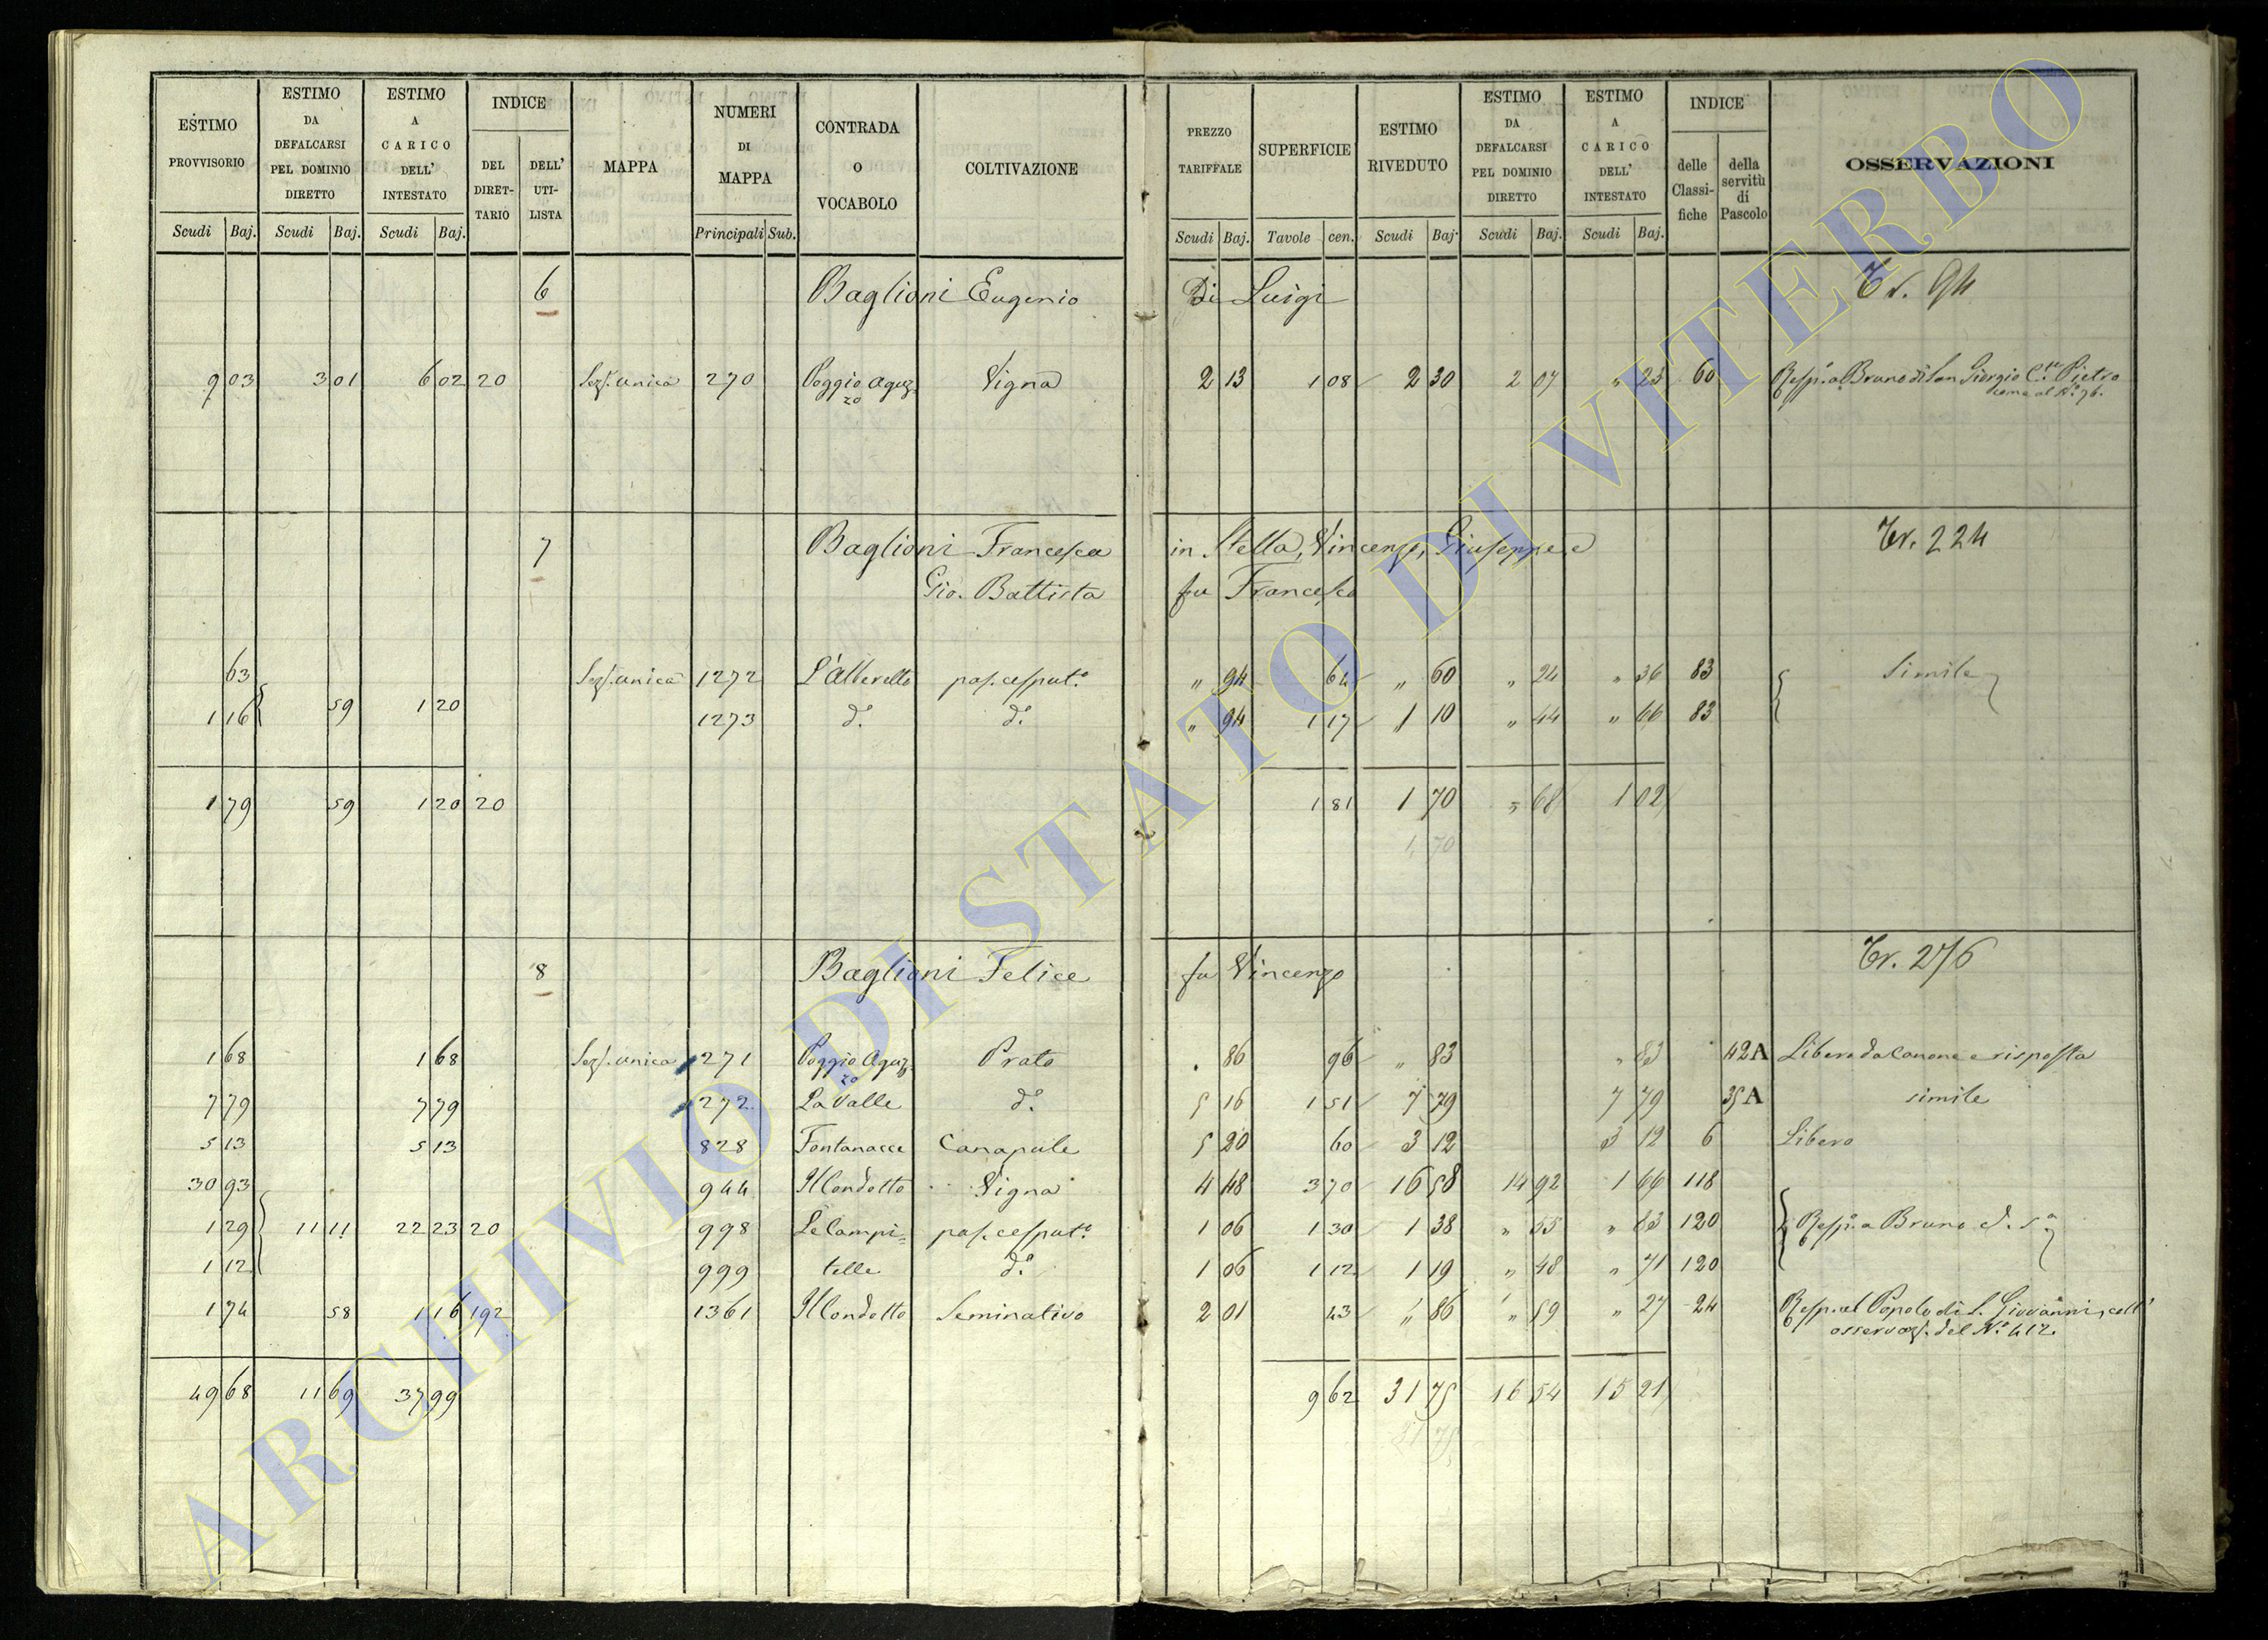 ESTIMO PROVVISORIO | ESTIMO DA DEFALCARSI PEL DOMINIO DIRETTO | ESTIMO A CARICO DELL' INTESTATO | INDICE | MAPPA | NUMERI DI MAPPA | CONTRADA O VOCABOLO | COLTIVAZIONE | PREZZO TARIFFALE | SUPERFICIE | ESTIMO RIVEDUTO | ESTIMO DA DEFALCARSI PEL DOMINIO DIRETTO | ESTIMO A CARICO DELL' INTESTATO | INDICE | OSSERVAZIONI
DEL DIRETTARIO | DELL' UTILISTA | delle Classifiche | della servitù di Pascolo
Scudi | Baj. | Scudi | Baj. | Scudi | Baj. | Principali | Sub. | Scudi | Baj. | Tavole | cen. | Scudi | Baj. | Scudi | Baj. | Scudi | Baj.
6 Baglioni Eugenio Di Luigi Tr. 94
9 03 | 3 01 | 6 02 | 20 | Sez. unica | 270 | Poggio Aguz= | Vigna | 2 13 | 1 08 | 2 30 | 2 07 | " 23 | 60 | Resp.a a Bruno di San Giorgio C.te Pietro
zo come al N.° 76.
7 Baglioni Francesca in Stella, Vincenzo, Giuseppe e Tr. 224
Gio. Battista fu Francesco
63 | Sez. unica | 1272 | L'Alberello | pas. cesput.° | " 94 | 64 | " 60 | " 24 | " 36 | 83 | Simile
1 16 | 59 | 1 20 | 1273 | d.° | d.° | " 94 | 1 17 | 1 10 | " 44 | " 66 | 83
1 79 | 59 | 1 20 | 20 | 1 81 | 1 70 | " 68 | 1 02
1 70
8 Baglioni Felice fu Vincenzo Tr. 276
1 68 | 1 68 | Sez. unica | 271 | Poggio Aguz= zo | Prato | . 86 | 96 | " 83 | " 83 | 42 A | Libero da Canone e risposta
7 79 | 7 79 | 272 | La Valle | d.° | 5 16 | 1 51 | 7 79 | 7 79 | 35 A | simile
5 13 | 5 13 | 828 | Fontanacce | Canapule | 5 20 | 60 | 3 12 | 3 12 | 6 | Libero
30 93 | 944 | Il Condotto | Vigna | 4 48 | 3 70 | 16 58 | 14 92 | 1 66 | 118
1 29 | 11 11 | 22 23 | 20 | 998 | Le Campi= | pas. cesput.° | 1 06 | 1 30 | 1 38 | " 55 | " 83 | 120 | Resp.a a Bruno d. s.a
1 12 | 999 | telle | d.° | 1 06 | 1 12 | 1 19 | " 48 | " 71 | 120
1 74 | 58 | 1 16 | 192 | 1361 | Il Condotto | Seminativo | 2 01 | 43 | " 86 | " 59 | " 27 | 24 | Resp. al Popolo di S. Giovanni, coll'
osservaz. del N.° 412.
49 68 | 11 69 | 37 99 | 9 62 | 31 75 | 16 54 | 15 21
31 75
ARCHIVIO DI STATO DI VITERBO